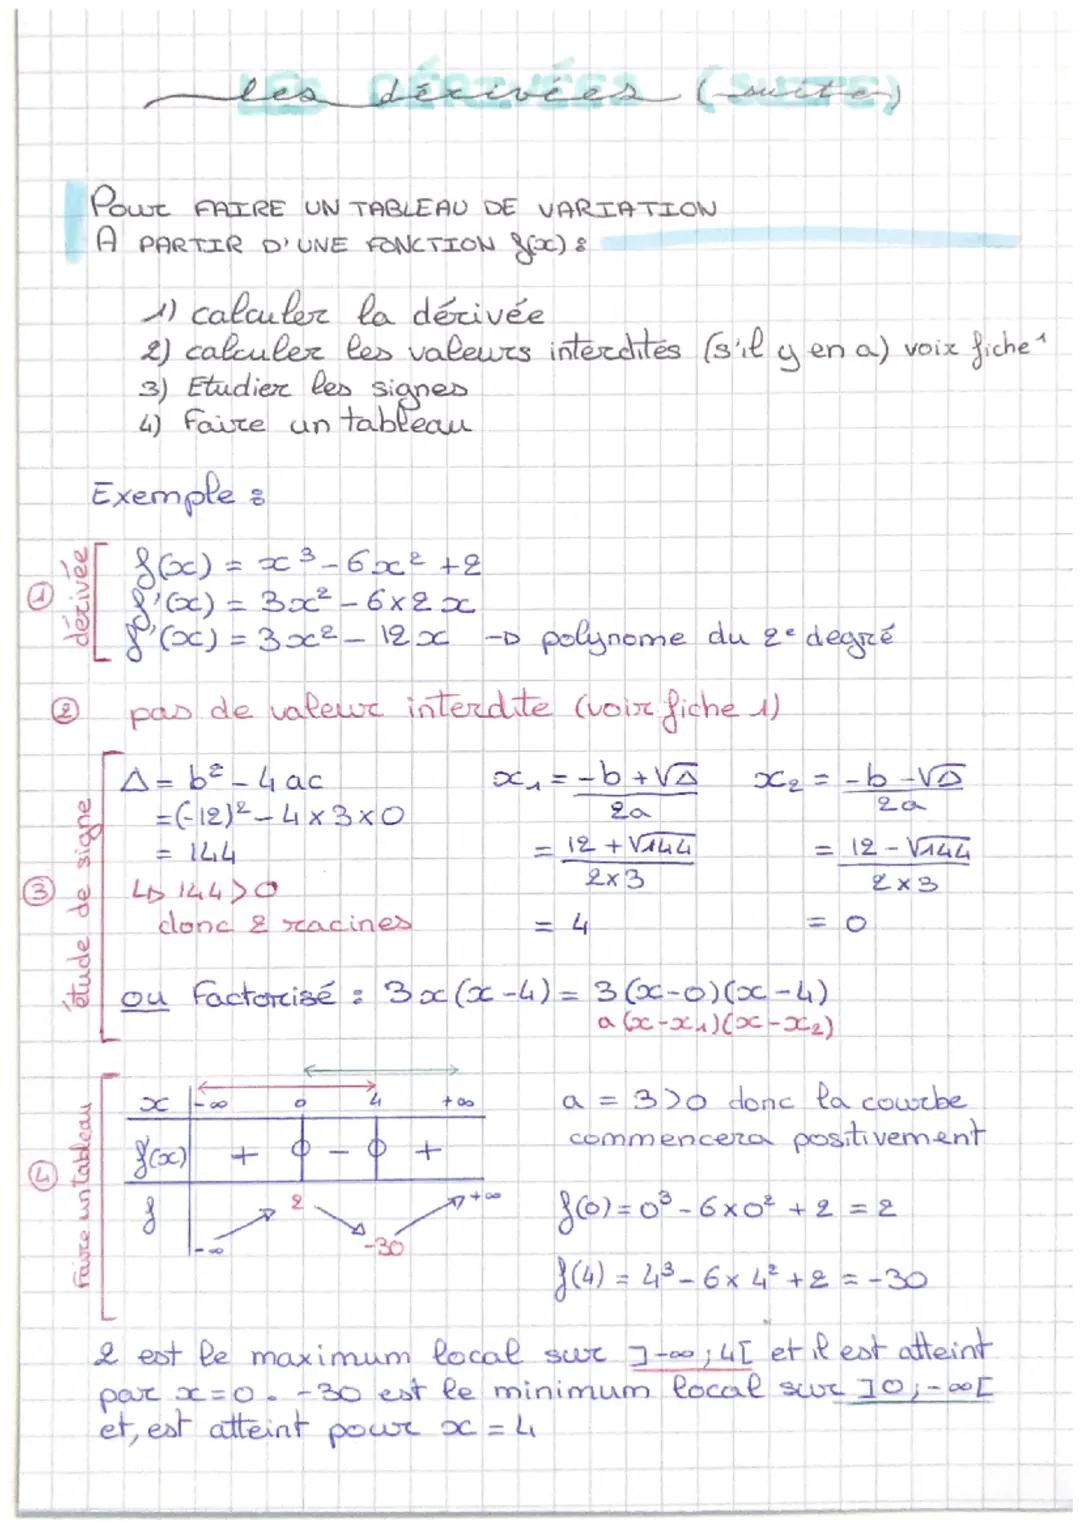 les dérivées (suite)
Pour FAIRE UN TABLEAU DE VARIATION
A PARTIR D'UNE FONCTION f(x) :
1) calculer la dérivée
2) calculer les valeurs interdites (s'il y en a) voir fiche 1
3) Etudier les signes
4) Faire un tableau
Exemple :
① dérivée
f(x) = x³ - 6x² + 2
f'(x) = 3x² - 6×2x
f'(x) = 3x² - 12x → polynome du 2e degré
② pas de valeur interdite (voir fiche 1)
③ étude de signe
Δ = b² - 4ac
= (-12)² - 4×3×0
= 144
↳ 144 > 0
donc 2 racines
x₁ = (-b + √Δ) / 2a
= (12 + √144) / 2×3
= 4
x₂ = (-b - √Δ) / 2a
= (12 - √144) / 2×3
= 0
ou Factorisé : 3x(x-4) = 3(x-0)(x-4)
a(x-x₁)(x-x₂)
④ Faire un tableau
x -∞ 0 4 +∞
f'(x) + 0 - 0 +
f -∞ 2 -30 +∞
a = 3 > 0 donc la courbe
commencera positivement
f(0) = 0³ - 6×0² + 2 = 2
f(4) = 4³ - 6×4² + 2 = -30
2 est le maximum local sur ]-∞ ; 4[ et il est atteint
par x = 0. -30 est le minimum local sur ]0 ; -∞[
et, est atteint pour x = 4